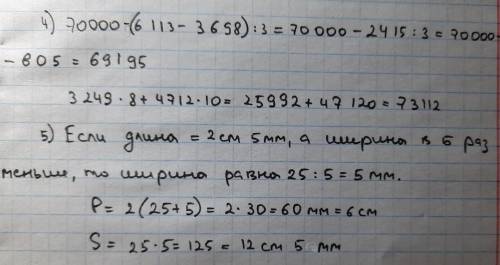 4) 70000-(6113-3698):3=70000-2415:3=70000-
-805=69195
3249·8+4712·10=25992+47120=73112
5) Если длина = 2см 5мм, а ширина в 5 раз
меньше, то ширина равна 25:5=5 мм.
P= 2(25+5)=2·30=60 мм=6см
S= 25·5=125=12 см 5 мм